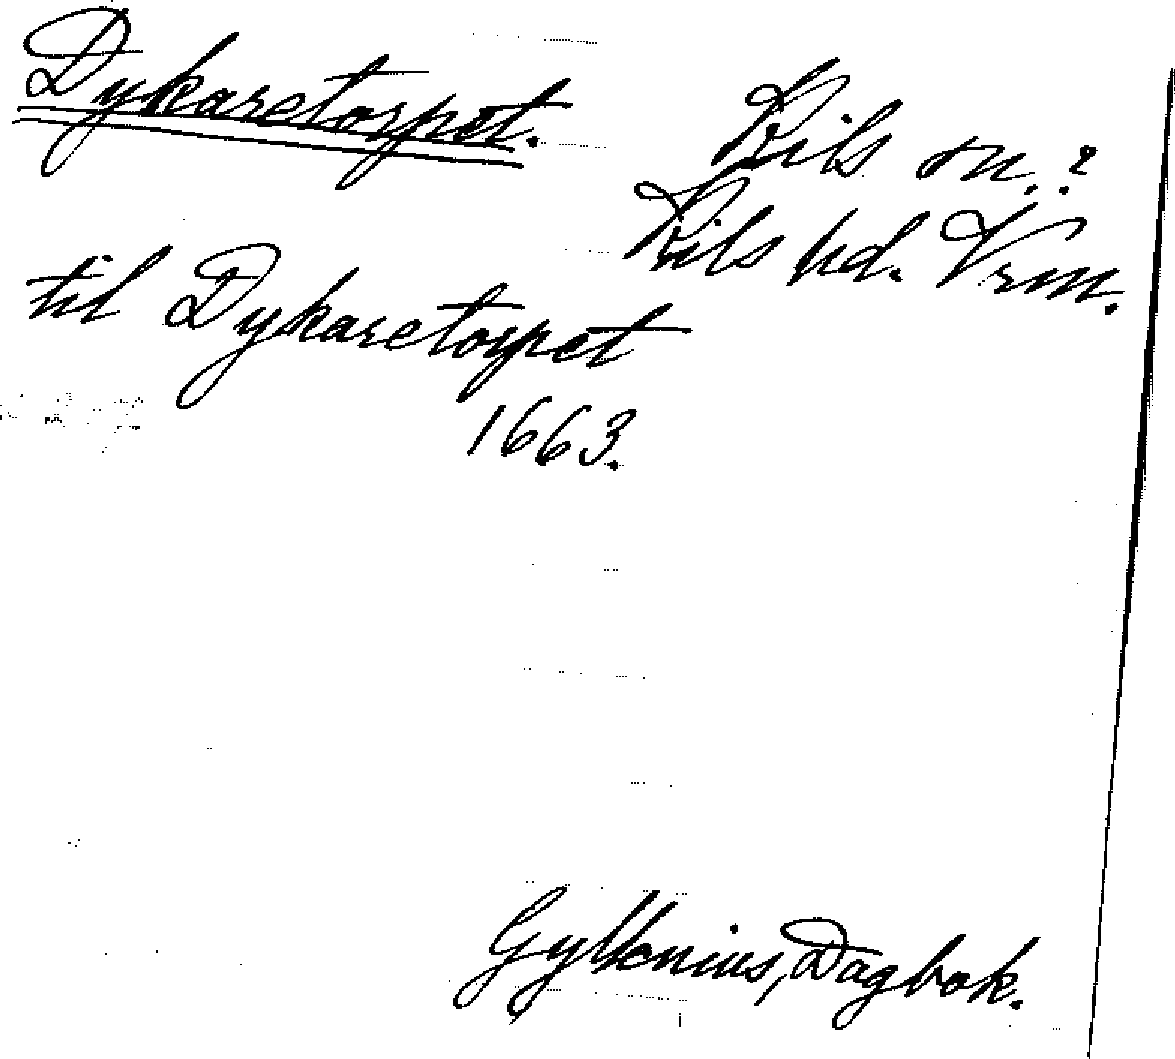 Dykaretorpet.
Kils sn.?
Kils hd. Vrm.
til Dykaretorpet
1663.
Gyllenius, Dagbok.